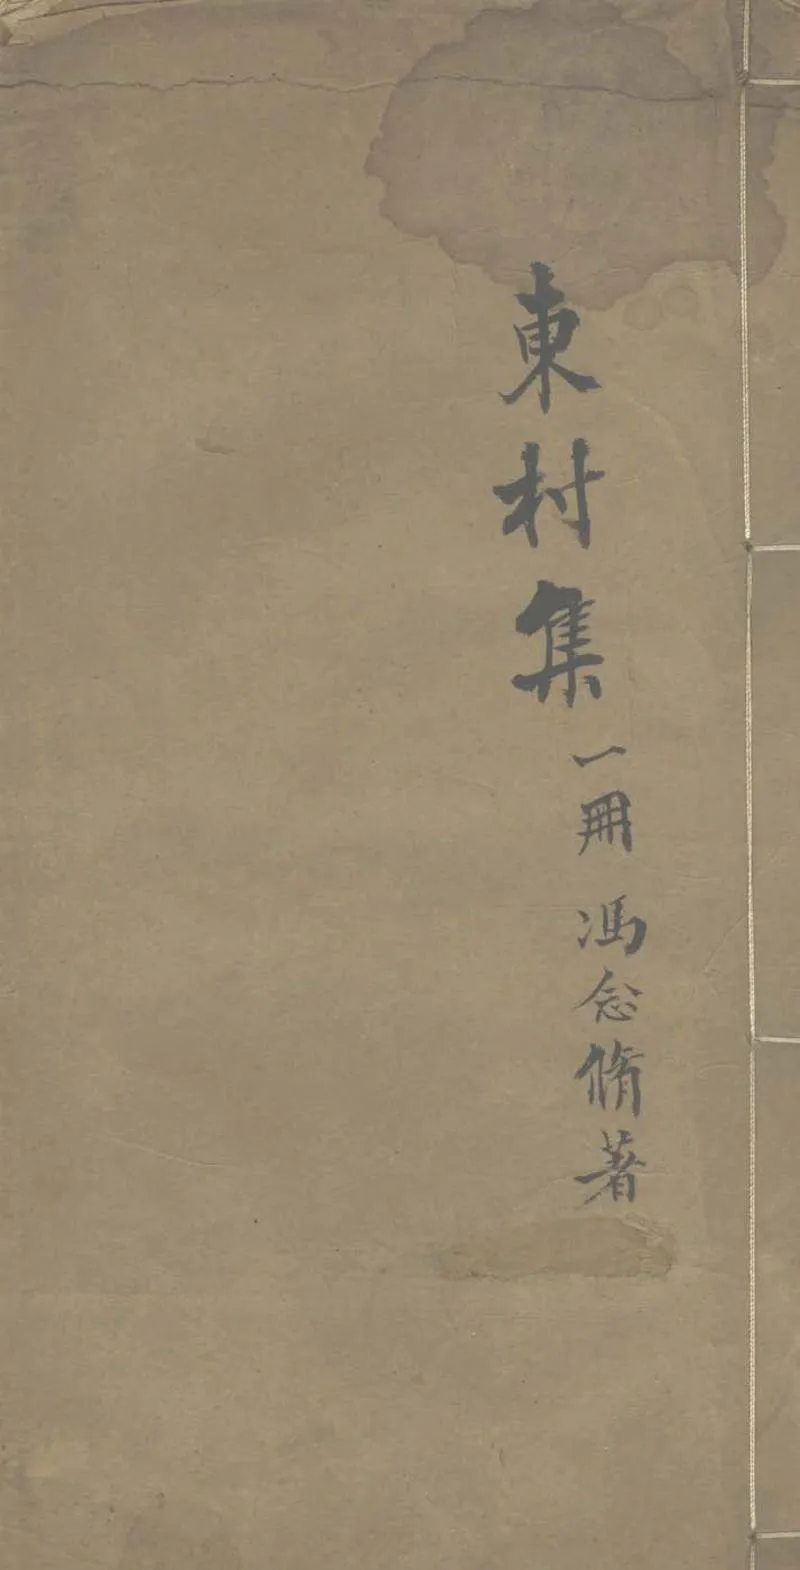 東村集
一冊 馮念脩著